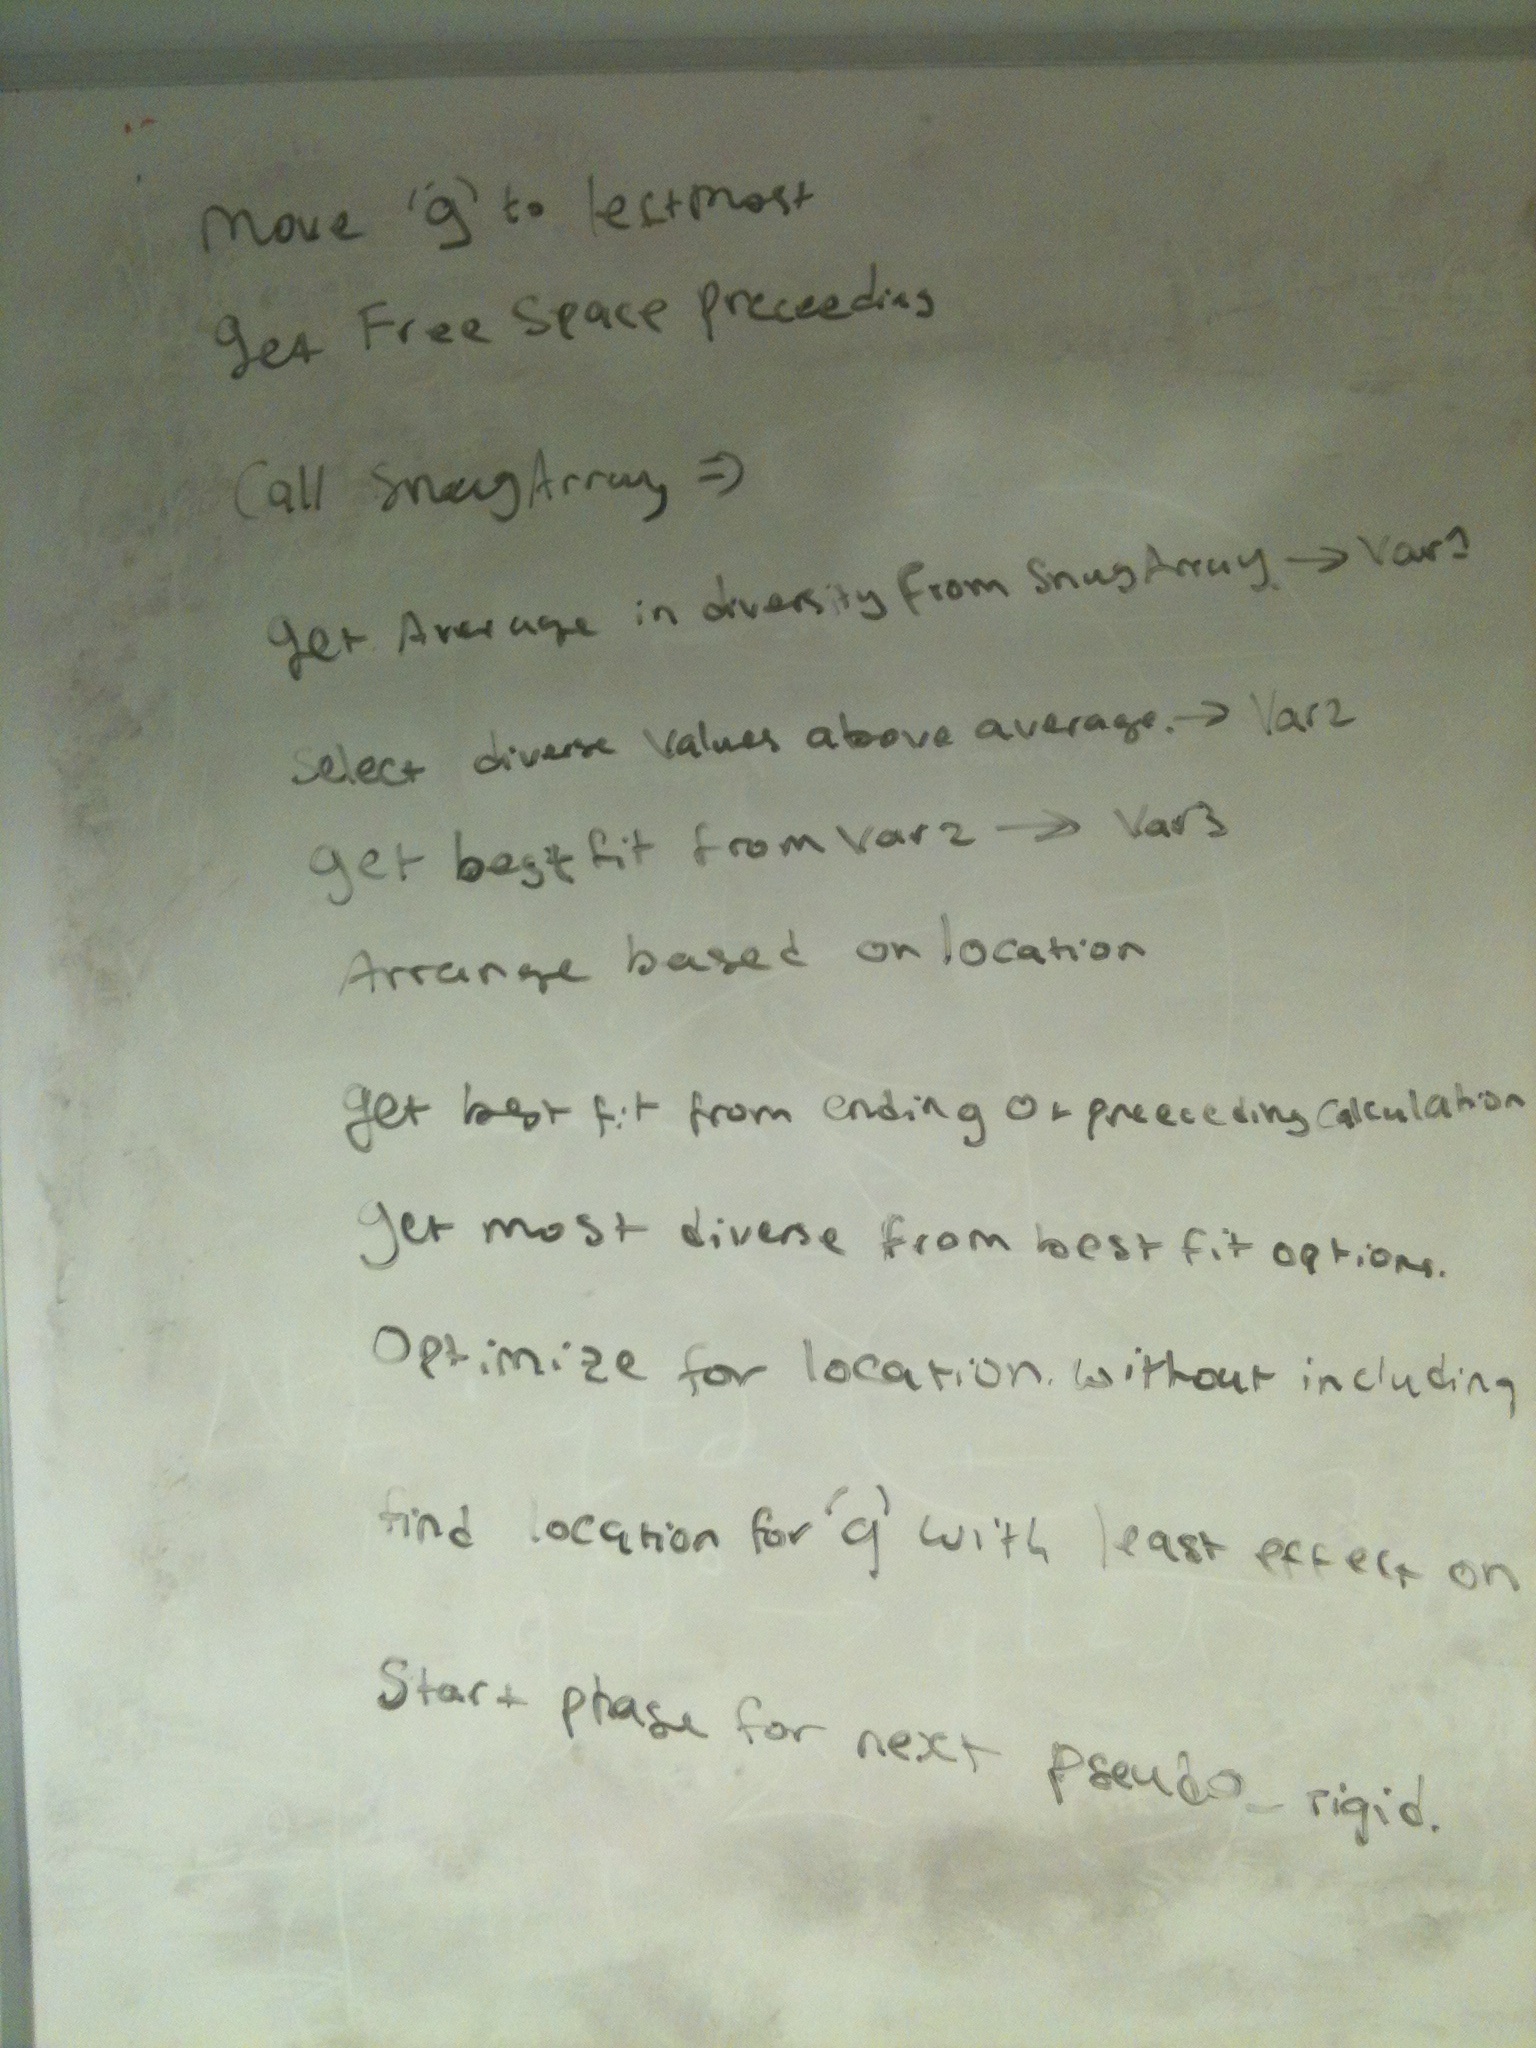 Move 'g' to leftmost
get Free Space preceeding
Call SnugArray =>
get Average in diversity from SnugArray. → Var1
Select diverse values above average. → Var2
get best fit from Var2 → Var3
Arrange based on location
get best fit from ending Or preeceding calculation
get most diverse from best fit options.
Optimize for location. without including
find location for 'g' with least effect on
Start phase for next pseudo_rigid.